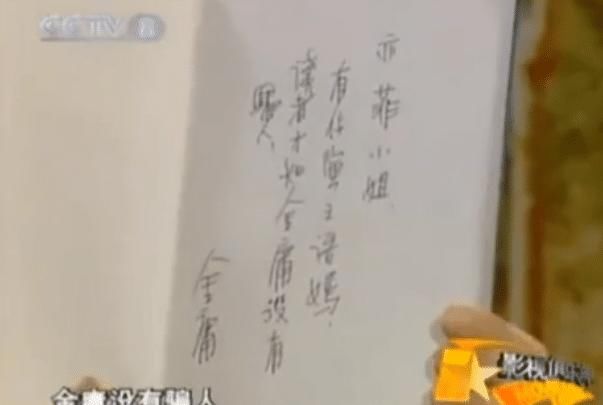 CCTV 8
亦菲小姐
有你演王语嫣,
读者才知金庸没有
骗人、
金庸
金庸没有骗人
影视俱乐部